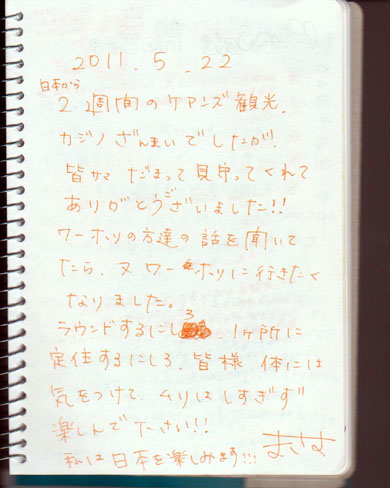 2011.5.22
日本から
2週間のケアンズ観光.
カジノざんまいでしたが.
皆サマ だまって見守ってくれて
ありがとうございました!!
ワーホリの方達の話を聞いて
たら、又ワーホリに行きたく
なりました。
ラウンドするにしろ、1ヶ所に
定住するにしろ、皆様 体には
気をつけて、ムリはしすぎず
楽しんで下さい!!
私は日本を楽しみます!!!